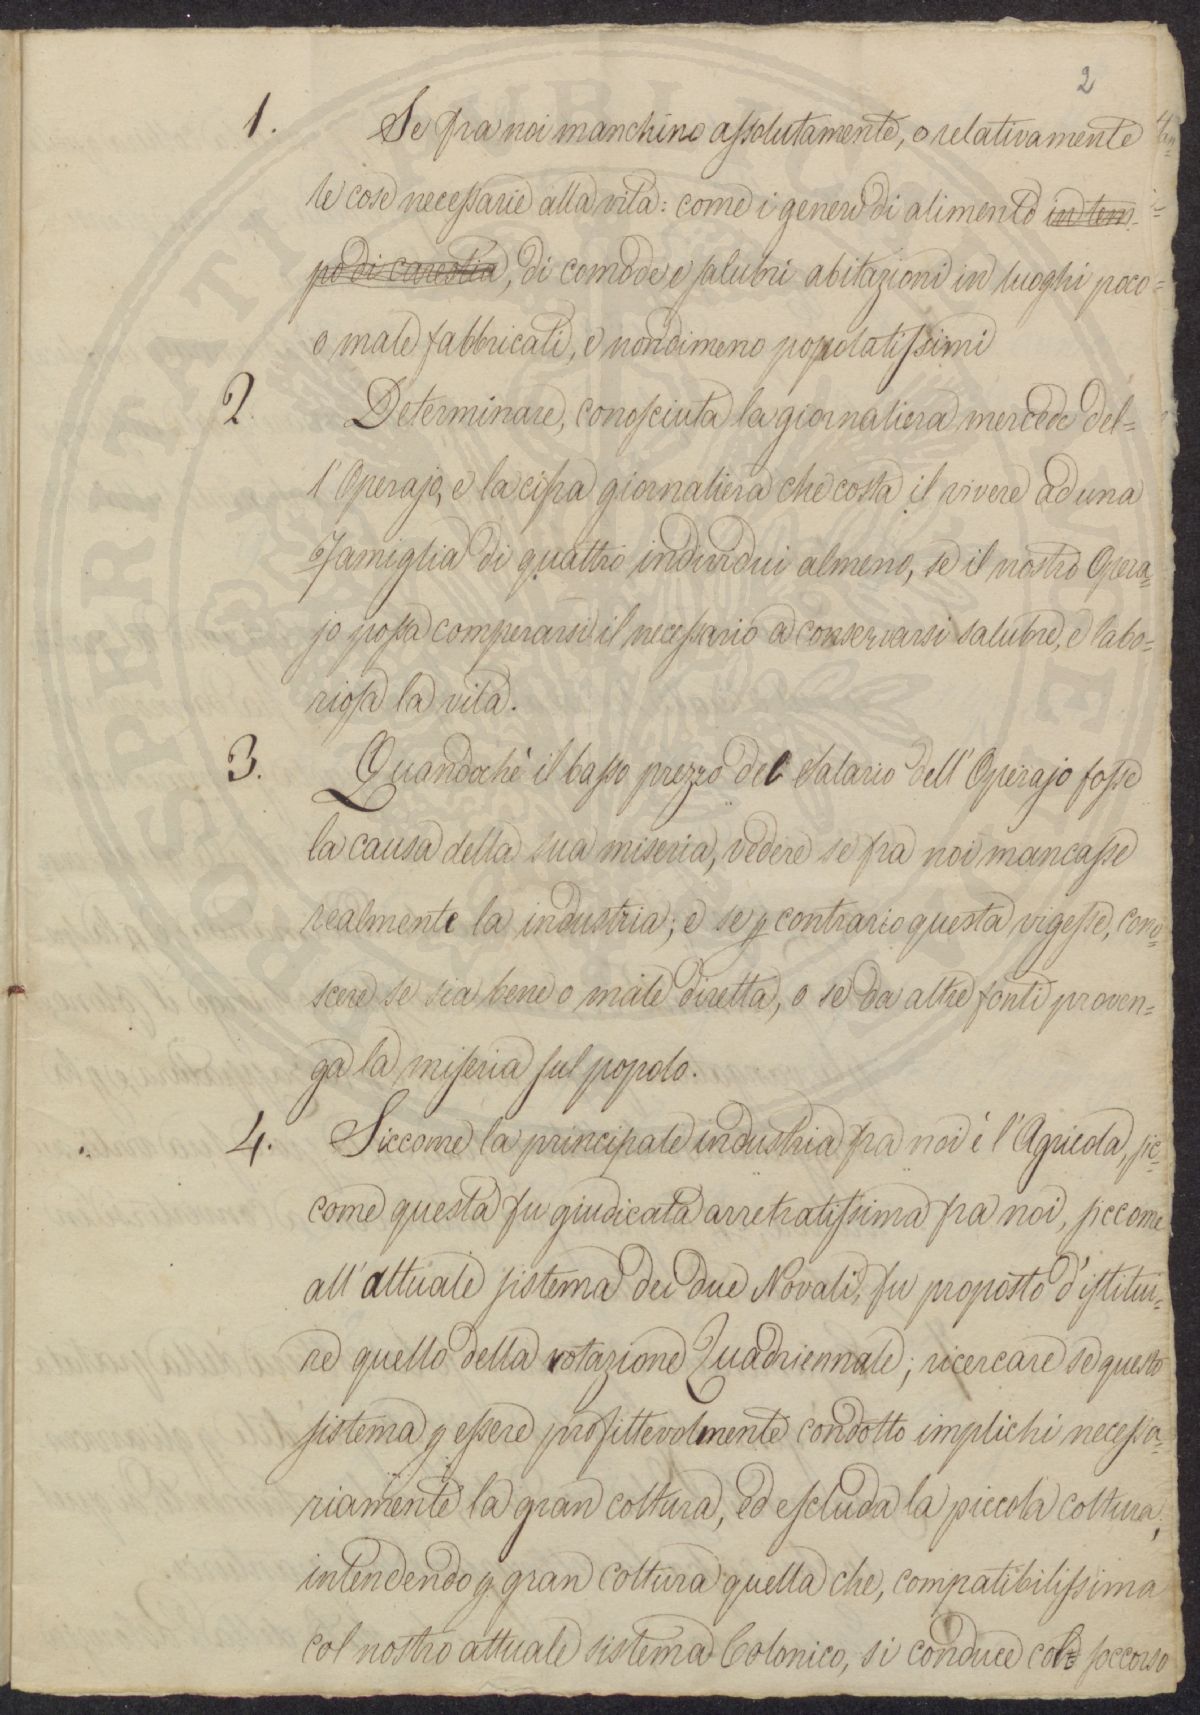 2
1. Se fra noi manchino assolutamente, o relativamente
le cose necessarie alla vita: come i generi di alimento in tem-
po di carestia, di comode e salubri abitazioni in luoghi poco=
o male fabbricati, e nondimeno popolatissimi
2. Determinare, conosciuta la giornaliera mercede del=
l'Operajo, e la cifra giornaliera che costa il vivere ad una
Famiglia di quattro individui almeno, se il nostro Opera=
jo possa comperarsi il necessario a conservarsi salubre, e labo=
riosa la vita.
3. Quandochè il basso prezzo del Salario dell'Operajo fosse
la causa della sua miseria, vedere se fra noi mancasse
realmente la industria; e se p contrario questa vigesse, cono=
scere se sia bene o male diretta, o se da altre fonti proven=
ga la miseria sul popolo.
4. Siccome la principale industria fra noi è l'Agricola, sic=
come questa fu giudicata arretratissima fra noi, siccome
all'attuale sistema dei due Novali, fu proposto d'istitui=
re quello della rotazione Quadriennale; ricercare se questo
sistema p essere profittevolmente condotto implichi necessa=
riamente la gran coltura, ed escluda la piccola coltura,
intendendo p gran coltura quella che, compatibilissima
col nostro attuale sistema Colonico, si conduce col soccorso
PROSPERITATI PUBLICAE